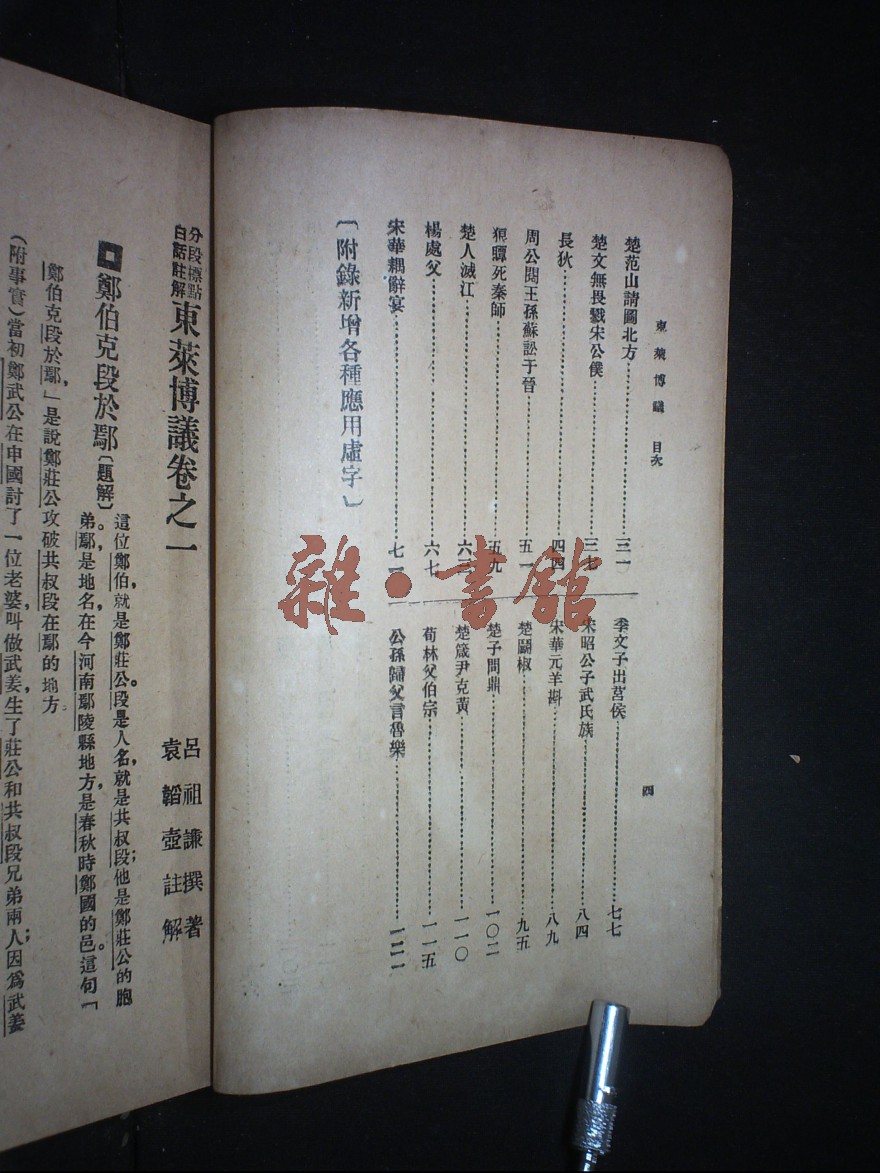 東萊博議 目次 四
楚范山請圖北方 三一
楚文無畏戮宋公僕 三七
長狄 四四
周公閱王孫蘇訟于晉 五一
狼瞫死秦師 五九
楚人滅江
楊處父 六七
宋華耦辭宴 七一
季文子出莒僕
宋昭公子武氏族 八四
宋華元羊斟 八九
楚鬭椒 九五
楚子問鼎 一〇二
楚箴尹克黃 一一〇
荀林父伯宗 一一五
公孫歸父言魯樂 一二一
〔附錄新增各種應用虛字〕
分段標點
白話註解
東萊博議卷之一
呂祖謙撰著
袁韜壺註解
鄭伯克段於鄢〔題解〕
這位鄭伯,就是鄭莊公。段是人名,就是共叔段;他是鄭莊公的胞
弟。鄢是地名,在今河南鄢陵縣地方,是春秋時鄭國的邑。這句「
鄭伯克段於鄢,」是說鄭莊公攻破共叔段在鄢的地方
(附事實)當初鄭武公在申國討了一位老婆,叫做武姜,生了莊公和共叔段兄弟兩人;因爲武姜
雜·書館